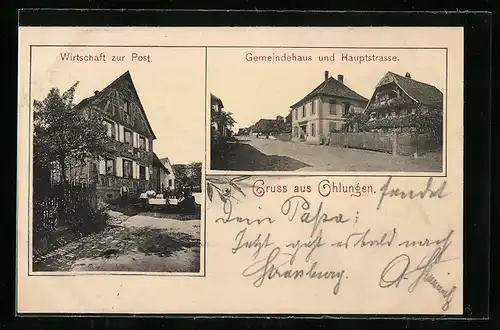 Wirtschaft zur Post
Gemeindehaus und Hauptstrasse.
Gruss aus Ohlungen. sendet
dem Papa:
Jetzt geht es bald nach
Strassburg.